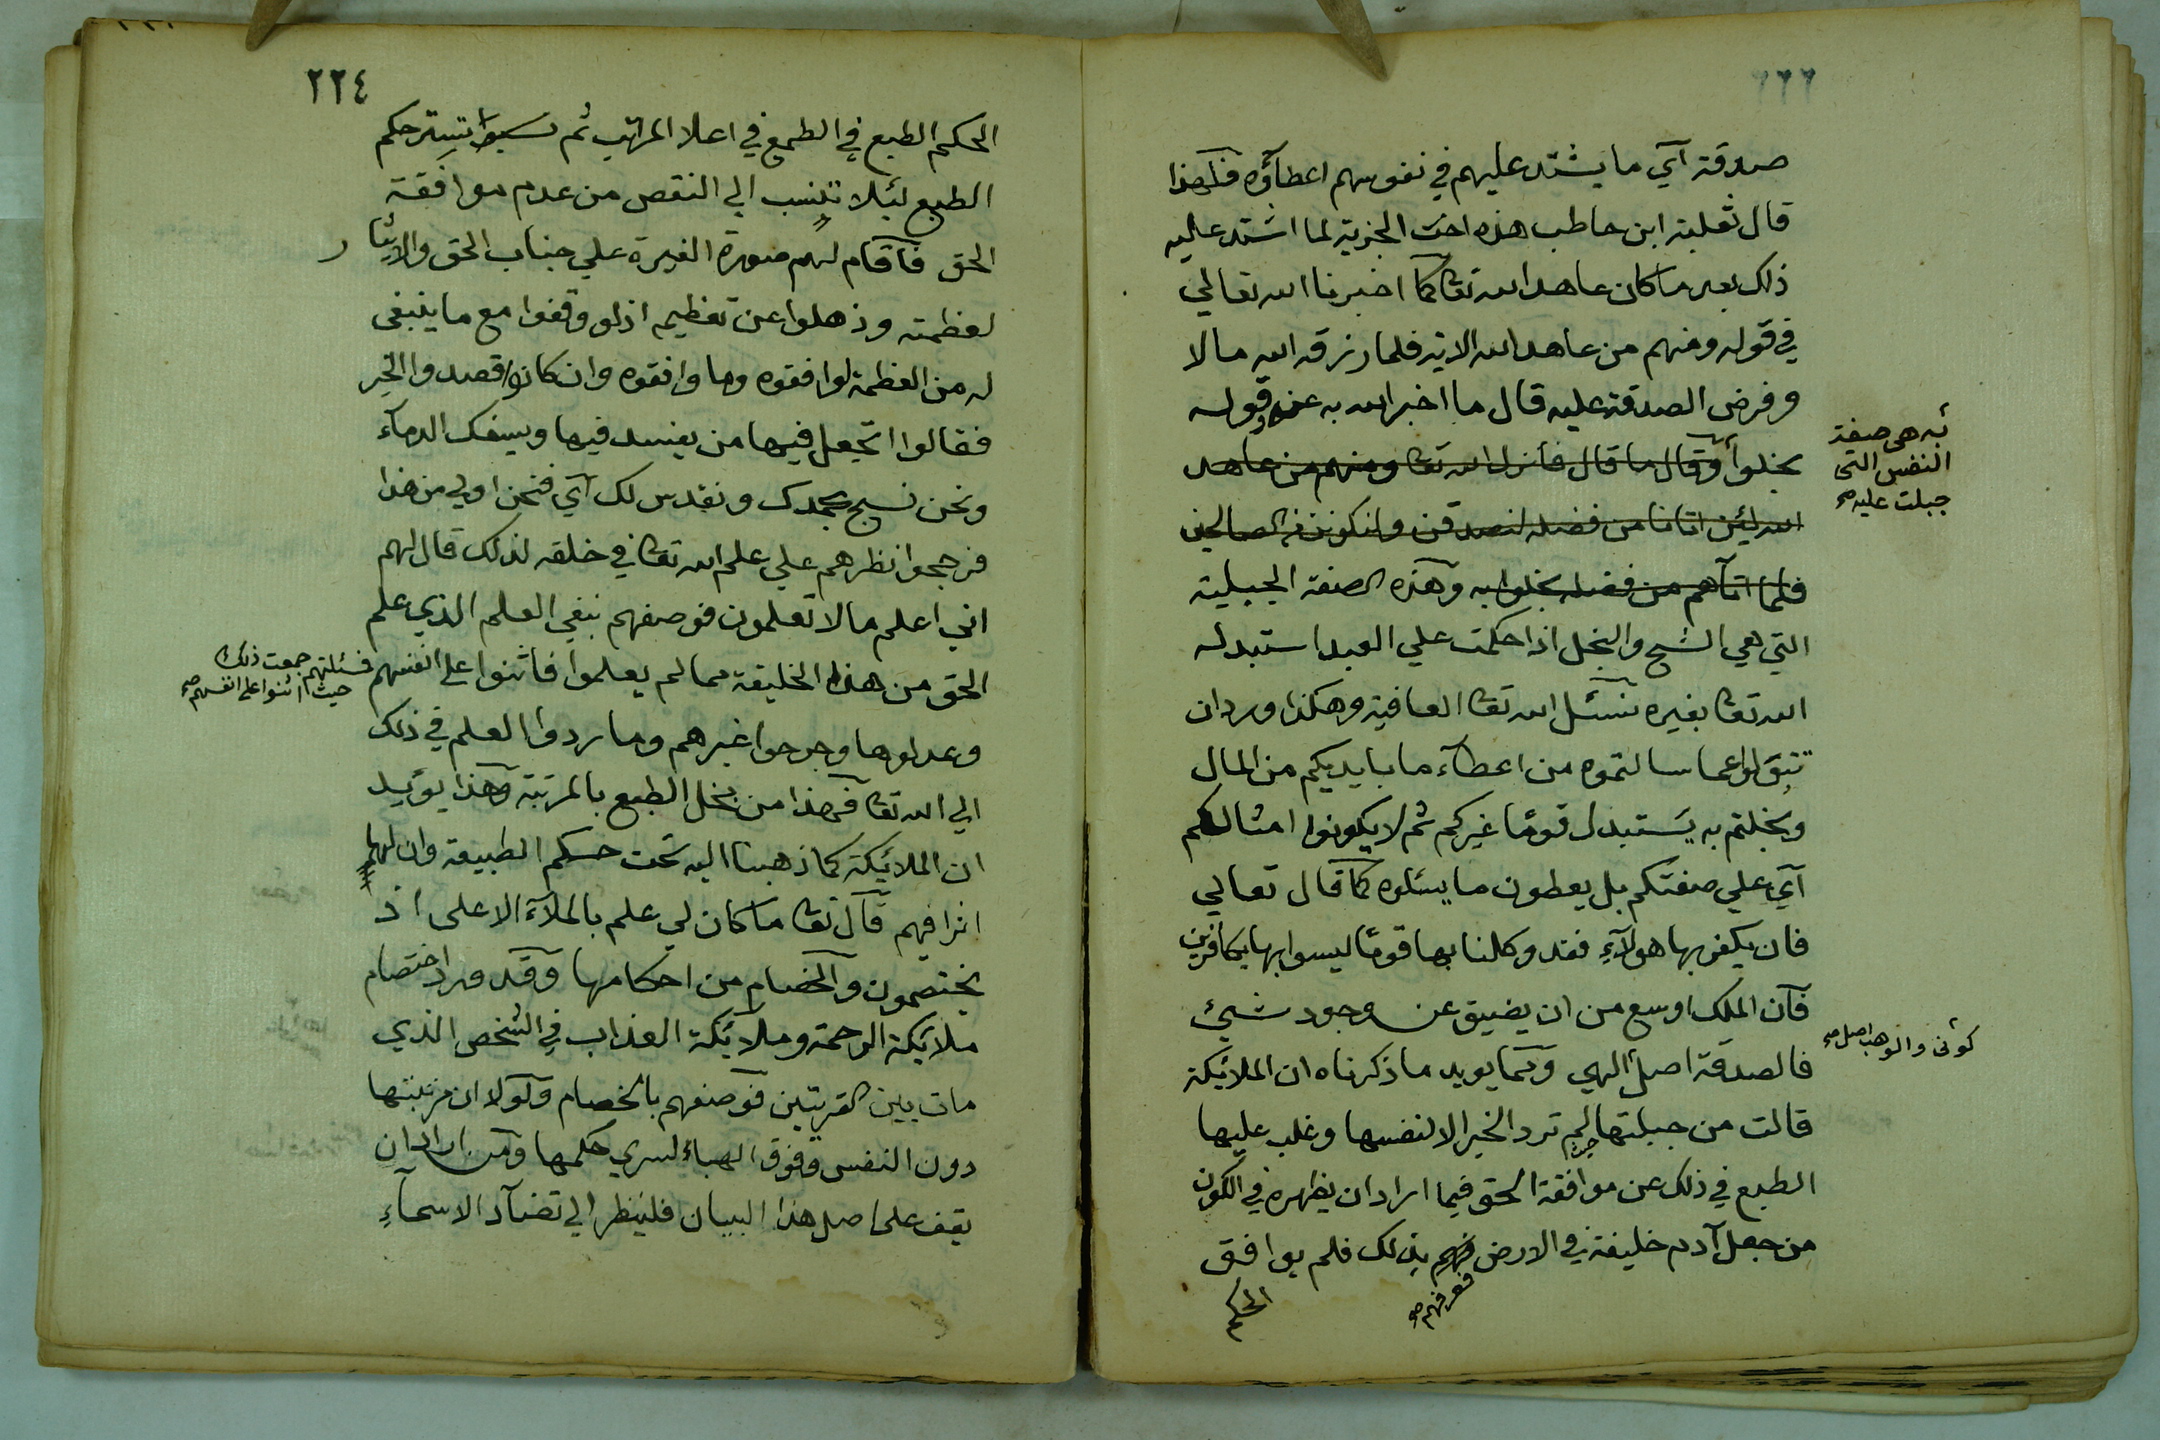 صدقة آي ما يشتد عليهم في نفوسهم اعطآؤه فلهذا
قال ثعلبة ابن حاطب هذه اخت الجزية لما اشتد عليه
ذلك بعد ما كان عاهد الله تعا كما اخبرنا الله تعالي
في قوله ومنهم من عاهد الله الاية فلما رزقه الله مالا
وفرض الصدقة عليه قال ما اخبر الله به عنه وقوله
بخلوا وقال ما قال فأنزل الله تعا ومنهم من عاهد
الله لئن اتانا من فضله لنصدقن ولنكونن من الصالحين
فلما اتآهم من فضله بخلوا به وهذه الصفة الجبلية
التي هي الشح والبخل اذا حكمت علي العبد استبدله
الله تعا بغيره نسئل الله تعا العافية وهكذا ورد ان
تتولوا عما سالتموه من اعطآء ما بايديكم من المال
وبخلتم به يستبدل قومًا غيركم ثم لا يكونوا امثالكم
آي علي صفتكم بل يعطون ما يسئلوه كما قال تعالي
فان يكفر بها هولآءِ فقد وكلنا بها قومًا ليسوا بها بكافرين
فآن الملك اوسع من ان يضيق عن وجود شيئ
فالصدقة اصل الهي ومما يويد ما ذكرناه ان الملائكة
قالت من جبلتها لم ترد الخير الا لنفسها وغلب عليها
الطبع في ذلك عن موافقة الحق فيما اراد ان يظهره في الكون
من جعل آدم خليفة في الارض بذلك فلم يوافق
فعرفهم صح
الحكم
به هي صفة
النفس التي
جبلت عليه صح
كوني والوهب اصل صح
٢٢٤
الحكم الطبع في الطمع في اعلا المراتب ثم تستر حكم
الطبع لئلا تنسب الي النقص من عدم موافقة
الحق فآقام لهم صورة الغيرة علي جناب الحق والايثار
لعظمته وذهلوا عن تعظيمه اذ لو وقفوا مع ما ينبغي
له من العظمة لوافقوه وما وافقوه وان كانوا قصدوا الخير
فقالوا اتجعل فيها من يفسد فيها ويسفك الدمآء
ونحن نسبح بحمدك ونقدس لك آي فنحن اولي من هذا
فرجحوا نظرهم علي علم الله تعا في خلقه لذلك قال لهم
اني اعلم ما لا تعلمون فوصفهم بنفي العلم الذي علم
الحق من هذا الخليفة مما لم يعلموا فاثنوا علي انفسهم
فسئلتهم جمعت ذلك
حيث اثنوا علي انفسهم صح
وعدلوها وجرحوا غيرهم وما ردوا العلم في ذلك
الي الله تعا فهذا من بخل الطبع بالمرتبة وهذا يؤيد
ان الملائكة كما ذهبنا اليه تحت حكم الطبيعة وان لها
اثرا فيهم قال تعا ما كان لي علم بالملآء الاعلي اذ
يختصمون والخصام من احكامها وقد ورد اختصام
ملائكة الرحمة وملائكة العذاب في الشخص الذي
مات بين القريتين فوصفهم بالخصام ولولا ان مرتبتها
دون النفس وفوق الهباء لسري حكمها ومن اراد ان
يقف علي اصل هذا البيان فلينظر الي تضآد الاسمآءِ